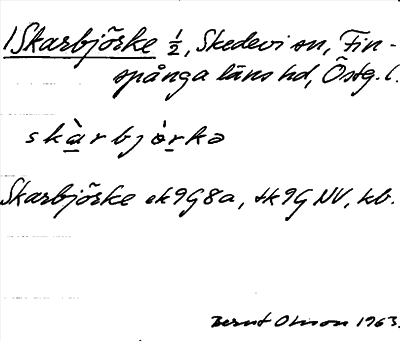 1 Skarbjörke ½, Skedevi sn, Fin-
spånga läns hd, Östg. l.
skàrbjòrkə
Skarbjörke ek 9G 8a, tk 9G NV, kb.
Bernt Olsson 1963.